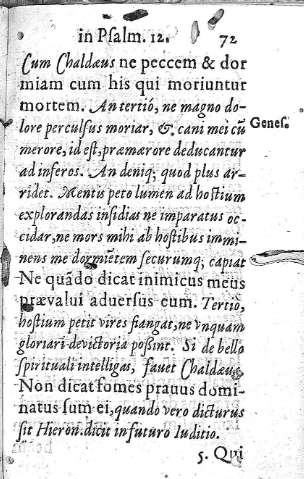 in Psalm. 12. 72
Cum Chaldæus ne peccem & dor
miam cum his qui moriuntur
mortem. An tertió, ne magno do-
lore perculsus moriar, &, cani mei cū
merore, id est, præmærore deducantur
ad inferos. An deniq; quod plus ar-
ridet. Mentis peto lumen ad hostium
explorandas insidias ne imparatus oc-
cidar, ne mors mihi ab hostibus immi-
nens me dormiētem securumq; capiat
Ne quādo dicat inimicus meus
prævalui adversus eum. Tertio,
hostium petit vires frangat, ne vnquam
gloriari devictoria possint. Si de bello
spirituali intelligas, favet Chaldæus
Non dicat fomes pravus domi-
natus sum ei, quando vero dicturus
sit Hieron. dicit in futuro Iuditio.
5. Qui
Genes.